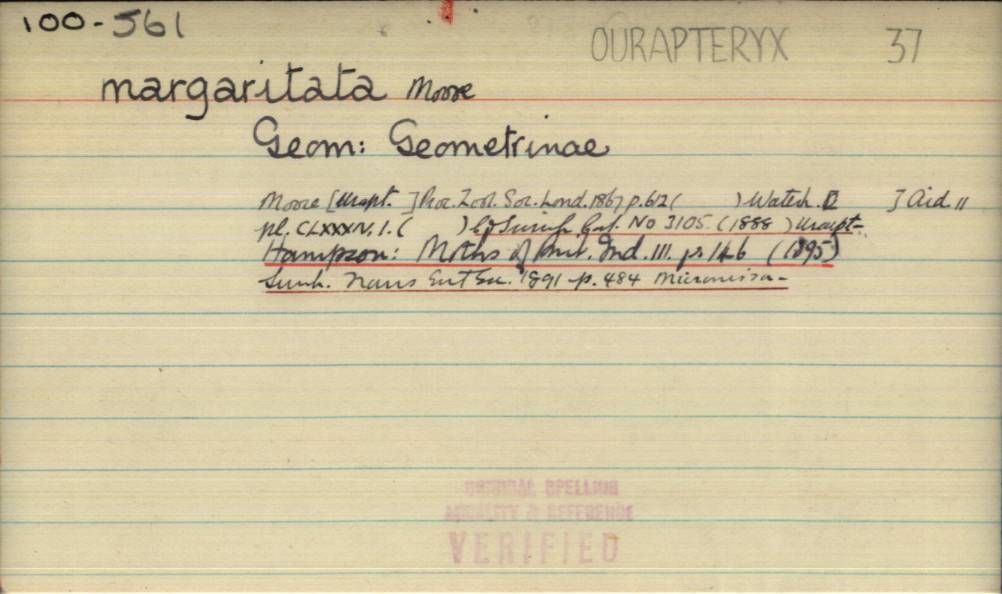 100-561
OURAPTERYX 37
margaritata Moore
Geom: Geometrinae
Moore [Urapt. ] Proc. Zool. Soc. Lond. 1867 p. 612 ( ) Waterh. [ ] Aid. II
pl. CLXXXIV, 1. ( ) C & Swinh Cat. No 3105. (1888) Urapt-
Hampson: Moths of Brit. Ind. III. p. 146 (1895)
Swinh. Trans Ent Soc. 1891 p. 484
VERIFIED